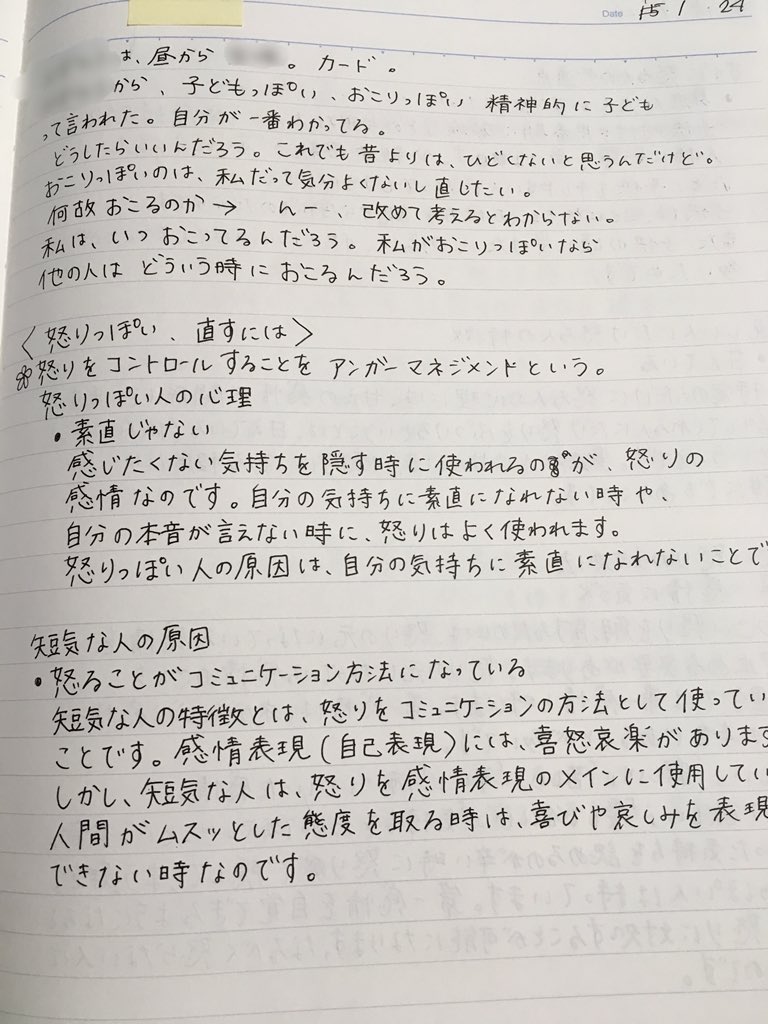 Date 15・1・24
は、昼から 。カード。
から、子どもっぽい、おこりっぽい 精神的に子ども
って言われた。自分が一番わかってる。
どうしたらいいんだろう。これでも昔よりは、ひどくないと思うんだけど。
おこりっぽいのは、私だって気分よくないし直したい。
何故おこるのか→ んー、改めて考えるとわからない。
私は、いつおこってるんだろう。私がおこりっぽいなら
他の人はどういう時におこるんだろう。
〈怒りっぽい、直すには〉
怒りをコントロールすることをアンガーマネジメントという。
怒りっぽい人の心理
・素直じゃない
感じたくない気持ちを隠す時に使われるのが、怒りの
感情なのです。自分の気持ちに素直になれない時や、
自分の本音が言えない時に、怒りはよく使われます。
怒りっぽい人の原因は、自分の気持ちに素直になれないことで
短気な人の原因
・怒ることがコミュニケーション方法になっている
短気な人の特徴とは、怒りをコミュニケーションの方法として使ってい
ことです。感情表現(自己表現)には、喜怒哀楽があります
しかし、短気な人は、怒りを感情表現のメインに使用してい
人間がムスッとした態度を取る時は、喜びや哀しみを表現
できない時なのです。